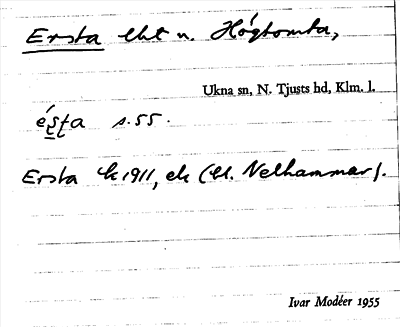 Ersta lht u. Högtomta,
Ukna sn, N. Tjusts hd, Klm. l.
é̱ṣṭa s. 55.
Ersta k 1911, ek (kl. Nelhammar).
Ivar Modéer 1955